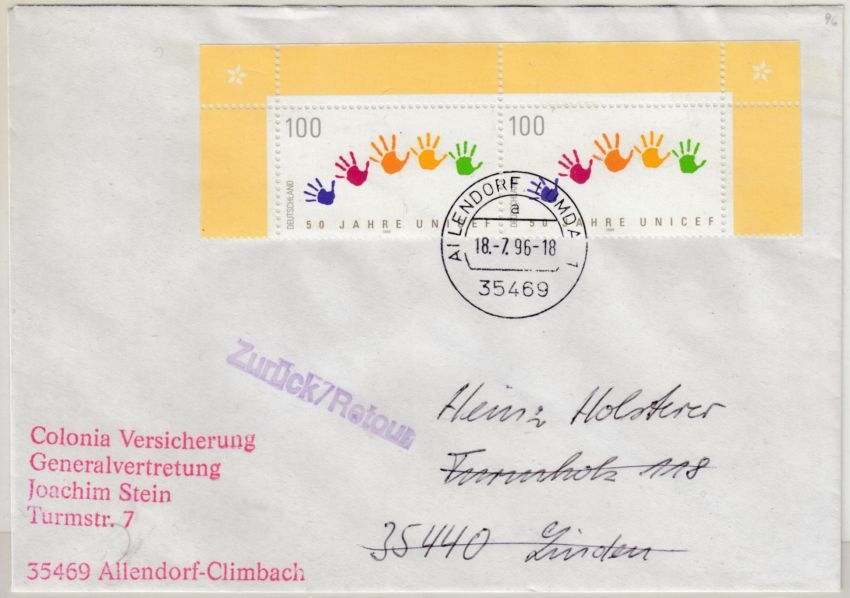 96
100
DEUTSCHLAND
50 JAHRE UNICEF
1996
100
DEUTSCHLAND
50 JAHRE UNICEF
1996
ALLENDORF LUMDA 1
a
18.-7.96-18
35469
Zurück/Retour
Heinz Holsterer
118
35440 Linden
Colonia Versicherung
Generalvertretung
Joachim Stein
Turmstr. 7
35469 Allendorf-Climbach